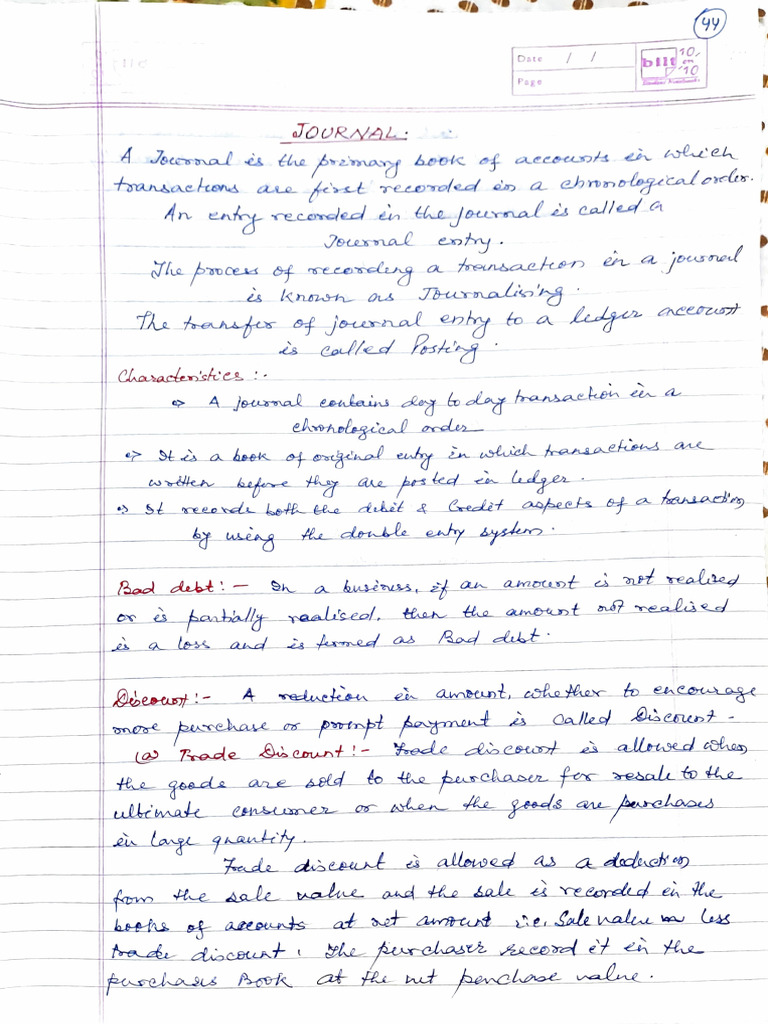 44
Date / /
Page
bilt
10 on 10
JOURNAL:
A Journal is the primary book of accounts in which
transactions are first recorded in a chronological order.
An entry recorded in the journal is called a
Journal entry.
The process of recording a transaction in a journal
is known as Journalising.
The transfer of journal entry to a ledger account
is called Posting.
Characteristics:-
⇒ A journal contains day to day transaction in a
chronological order
⇒ It is a book of original entry in which transactions are
written before they are posted in ledger.
⇒ It records both the debit & Credit aspects of a transaction
by using the double entry system.
Bad debt:- In a business, if an amount is not realised
or is partially realised, then the amount not realised
is a loss and is termed as Bad debt.
Discount:- A reduction in amount, whether to encourage
more purchase or prompt payment is called Discount-
(a) Trade Discount:- Trade discount is allowed when
the goods are sold to the purchaser for resale to the
ultimate consumer or when the goods are purchases
in large quantity.
Trade discount is allowed as a deduction
from the sale value and the sale is recorded in the
books of accounts at net amount i.e. Sale value less
trade discount. The purchaser record it in the
purchases Book at the net penchase value.